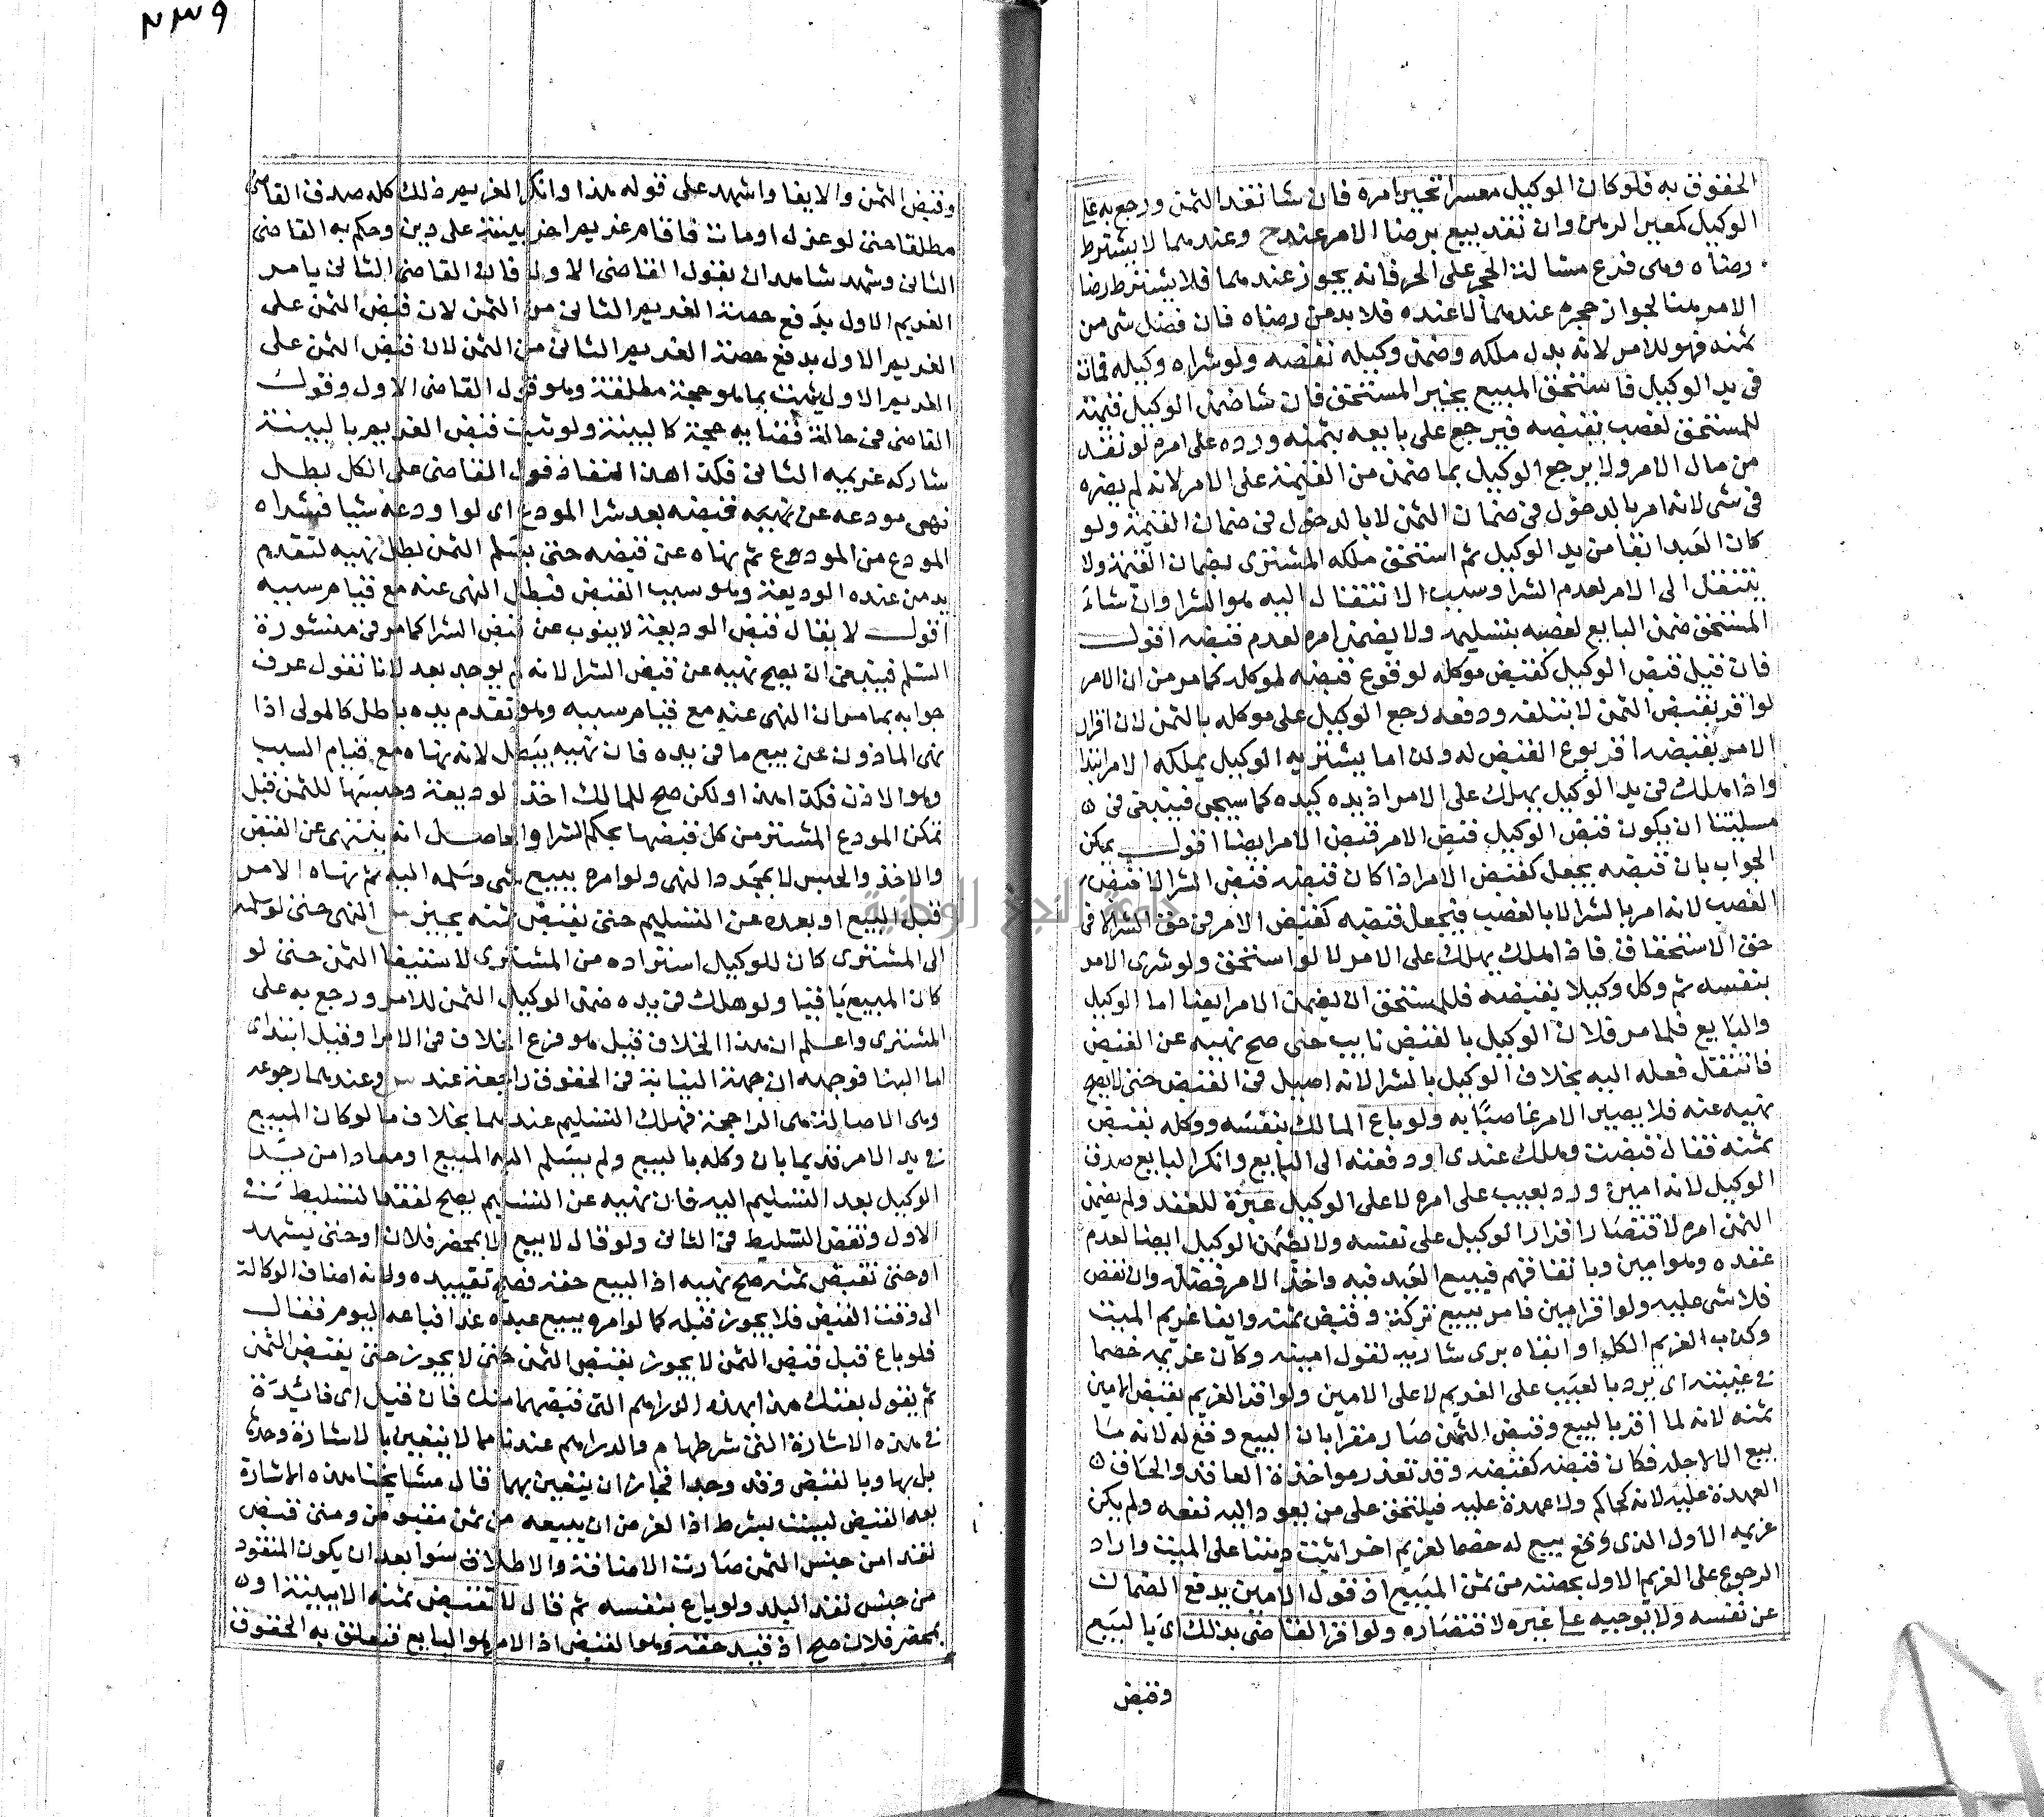 ٢٣٩
الحقوق به فلو كان الوكيل معسرا تخير امره فان شا نقد الثمن ورجع به عا
الوكيل كمعير الرهن وان نقد ببيع برضا الامر عند ح وعندهما لا يشترط
رضاه وهى فرع مسالة الحجر على الحر فانه يجوز عندهما فلا يشترط رضا
الامر هنا لجواز حجره عندهما لا عنده فلا بد من رضاه فان فضل شى من
ثمنه فهو للامر لانه بدل ملكه وضمن وكيله نقضه ولو شراه وكيله فمات
فى يد الوكيل فاستحق المبيع يخير المستحق فان شا ضمن الوكيل قيمته
للمستحق لغصب بقبضه فيرجع على بايعه بثمنه ورده على امره لو نقد
من مال الامر ولا يرجع الوكيل بما ضمن من القيمة على الامر لانه لم يضره
فى شى لانه امر بالدخول فى ضمان الثمن لا بالدخول فى ضمان القيمة ولو
كان العبد ابقا من يد الوكيل ثم استحق ملكه المشترى بضمان القيمة ولا
ينتقل الى الامر لعدم الشرا وسبب الانتقال اليه هو الشرا وان شاء
المستحق ضمن البايع لغصبه بتسليمه ولا يضمن امره لعدم قبضه اقول
فان قيل قبض الوكيل كقبض موكله لوقوع قبضه لموكله كما مر من ان الامر
لو اقر بقبض الثمن لا بتلفه ودفعه رجع الوكيل على موكله بالثمن لان اقرار
الامر بقبضه اقر بوقوع القبض له ولان ما يشتريه الوكيل يملكه الامر ابتدا
واذا هلك فى يد الوكيل يهلك على الامر اذ يده كيده كما سيجى فينبغى فى
مسلتنا ان يكون قبض الوكيل قبض الامر قبض الامر ايضا اقول يمكن
الجواب بان قبضه يجعل كقبض الامر اذا كان قبضه قبض الشرا لا قبض
الغصب لانه امر بالشرا لا بالغصب فيجعل قبضه كقبض الامر فى حق الشرا لا فى
حق الاستحقاق فاذا هلك يهلك على الامر لا لو استحق ولو شرى الامر
بنفسه ثم وكل وكيلا بقبضه فللمستحق ان يضمن الامر ايضا اما الوكيل
والبايع فلما مر فلان الوكيل بالقبض نايب حتى صح نهيه عن القبض
فانتقل فعله اليه بخلاف الوكيل بالشرا لانه اصيل فى القبض حتى لا يصح
نهيه عنه فلا يصير الامر غاصبا به ولو باع المالك بنفسه ووكله بقبض
ثمنه فقال قبضت وهلك عندى او دفعته الى البايع وانكر البايع صدق
الوكيل لانه امين ورد بعيب على امره لا على الوكيل عبرة للعقد ولم يضمن
الثمن امره لاقتصار اقرار الوكيل على نفسه ولا يضمن الوكيل ايضا لعدم
عقده وهو امين وباتفاقهم فيبيع العبد فيه واخذ الامر فضله وان نقص
فلا شى عليه ولو اقر امين قامر ببيع تركة وقبض ثمنه وايفا غريم الميت
وكذب الغريم الكل او ايفاه برى شاريه لقول امينه وكان غريمه خصما
فى عيبته اى يرد بالعيب على الغريم لا على الامين ولو اقر الغريم بقبض الامين
ثمنه لانه لما اقر بالبيع وقبض الثمن صار مقرا بان البيع وقع له لانه ما
بيع الا لاجله فكان قبضه كقبضه وقد تعذر مواخذة العاقد والحاق
العهدة عليه لانه كحاكم ولا عهدة عليه فيلتحق على من يعود اليه نفعه ولم يكن
غريمه الاول الذى وقع ببيع له خصما لغريم اخر اثبت ديننا على الميت واراد
الرجوع على الغريم الاول بحصته من ثمن المبيع اذ قول الامين يدفع الضمان
عن نفسه ولا يوجبه عا غيره لاقتصاره ولو اقر القاضى بذلك اى بالبيع
وقبض
وقبض الثمن والايفا واشهد على قوله هذا وانكر الغريم ذلك كله صدق القاضى
مطلقا حتى لو عزل او مات فاقام غريم اخر بينة على دين وحكم به القاضى
الثانى وشهد شاهدان بقول القاضى الاول فان القاضى الثانى يامر
الغريم الاول بدفع حصة الغريم الثانى من الثمن لان قبض الثمن على
الغريم الاول بدفع حصة الغريم الثانى من الثمن لان قبض الثمن على
الغريم الاول يثبت بما هو حجة مطلقة وهو قول القاضى الاول وقول
القاضى فى حالة قضايه حجة كالبينة ولو ثبت قبض الغريم بالبينة
شاركه غريمه الثانى فكذا هذا لنفاذ قول القاضى على الكل بطل
نهى مودعه عن نهيه قبضه بعد شرا المودع اى لو اودعه شيا فشراه
المودع من المودع ثم نهاه عن قبضه حتى يسلم الثمن بطل نهيه لتقدم
يد من عنده الوديعة وهو سبب القبض فبطل النهى عنه مع قيام سببه
اقول لا يقال قبض الوديعة لا ينوب عن قبض الشرا كما مر فى منشورة
السلم فينبغى ان يصح نهيه عن قبض الشرا لانه لم يوجد بعد لانا نقول عرف
جوابه بما مر ان النهى عنه مع قيام سببه وهو تقدم يده باطل كالمولى اذا
نهى الماذون عن بيع ما فى يده فان نهيه يبطل لانه نهاه مع قيام السبب
وهو الاذن فكذا هذا ولكن صح للمالك اخذ الوديعة وحبسها للثمن قبل
تمكن المودع المشتر من كل قبضها بحكم الشرا والحاصل انه ينتهى عن القبض
والاخذ والحبس لا بمجرد النهى ولو امره ببيع شى وسلمه اليه ثم نهاه الامر
قبل البيع او بعده عن التسليم حتى يقبض ثمنه يجيز س النهى حتى لو سلمه
الى المشترى كان للوكيل استرداده من المشترى لاستيفا الثمن حتى لو
كان المبيع باقيا ولو هلك فى يده ضمن الوكيل الثمن للامر ورجع به على
المشترى واعلم ان هذا الخلاف قيل هو فرع الخلاف فى الابرا وقيل ابتداى
اما البنا فوجهه ان جهة النيابة فى الحقوق راجحة عند س وعندهما رجوعه
وهى الاصالة هى الراجحة فملك التسليم عندهما بخلاف ما لو كان المبيع
فى يد الامر قديما بان وكله بالبيع ولم يسلم اليه المبيع او معادا من يد
الوكيل بعد التسليم اليه فان نهيه عن التسليم يصح لفقد التسليط فى
الاول ونقض التسليط فى الثانى ولو قال لا تبيع الا بمحضر فلان او حتى يشهد
او حتى تقبض ثمنه صح نهيه اذ البيع حقه فصح تقييده ولانه اضاف الوكالة
الى وقت القبض فلا يجوز قبله كما لو امره ببيع عبده غدا فباعه اليوم فقال
فلو باع قبل قبض الثمن لا يجوز بقبض الثمن حتى لا يجوز حتى يقبض الثمن
ثم يقول بعتك هذا بهذه الدراهم التى قبضتها منك فان قيل اى فائدة
فى هذه الاشارة التى شرطها م والدراهم عندنا مما لا يتعين بالاشارة وحدها
بل بها وبالقبض وقد وجدا فجاز ان يتعين بهما قال مشايخنا هذه الاشارة
بعد القبض ليست بشرط اذ الغرض ان يبيعه من ثمن مقبوض ومتى قبض
نقدا من جنس الثمن صارت الاضافة والاطلاق سوا بعد ان يكون المنقود
من جنس نقد البلد ولو باع بنفسه ثم قال لا تقبض ثمنه الا ببينة او
بمحضر فلان صح اذ قيد حقه وهو القبض اذ الامر هو البايع فتعلق به الحقوق
جامعة النجاح الوطنية